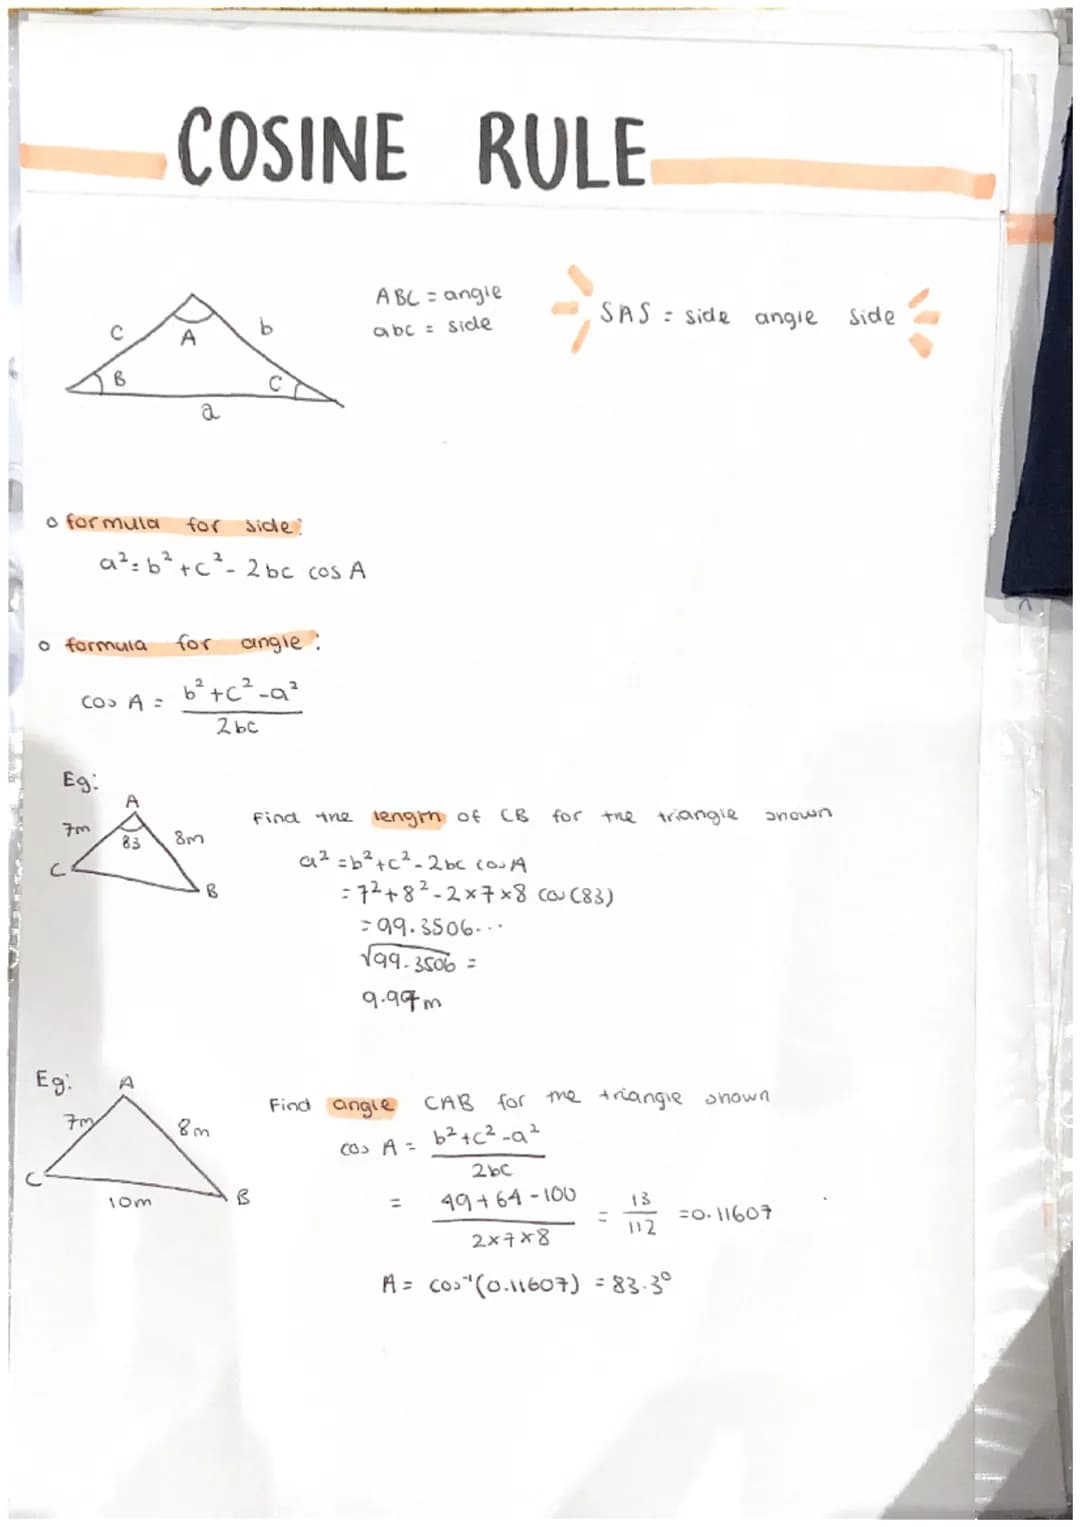 COSINE RULE
ABC = angle
abc = side
SAS = side angle side
c
A
b
B
C
a
o formula for side:
a² = b² + c² - 2bc cos A
o formula for angle:
cos A = b² + c² - a² / 2bc
Eg:
A
7m
83
8m
C
B
Find the length of CB for the triangle shown
a² = b² + c² - 2bc cos A
= 7² + 8² - 2×7×8 cos (83)
= 99.3506...
√99.3506 =
9.97m
Eg:
A
7m
8m
C
10m
B
Find angle CAB for the triangle shown
cos A = b² + c² - a² / 2bc
= 49 + 64 - 100 / 2×7×8 = 13 / 112 = 0.11607
A = cos⁻¹(0.11607) = 83.3°